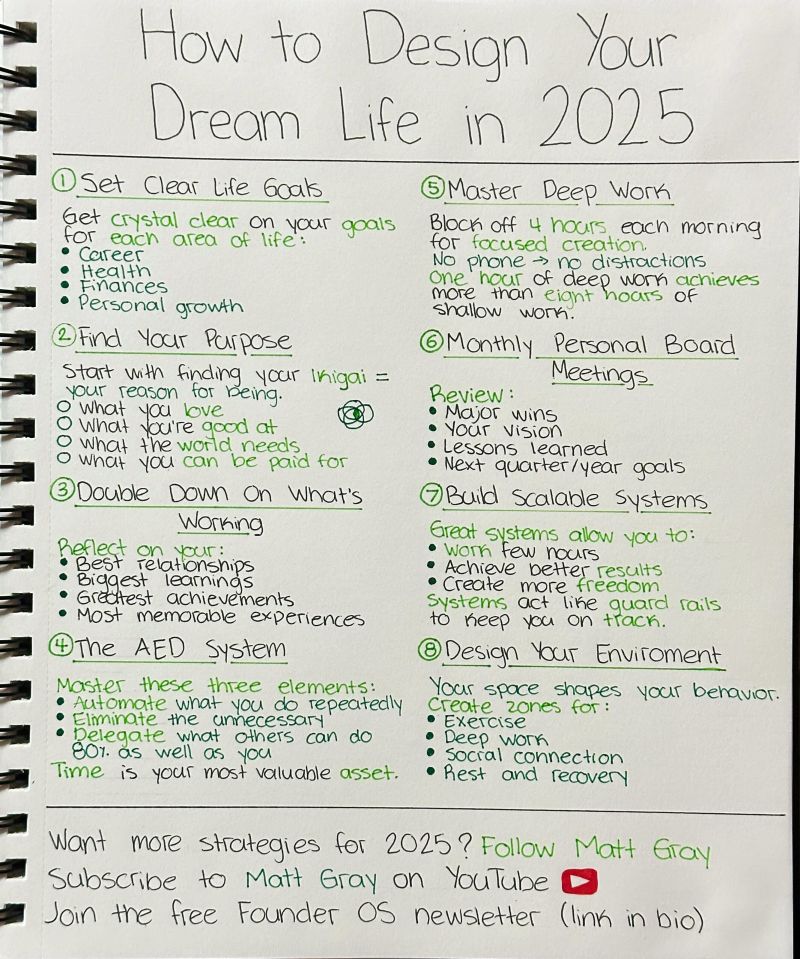 How to Design Your
Dream Life in 2025
① Set Clear Life Goals
Get crystal clear on your goals
for each area of life:
• Career
• Health
• Finances
• Personal growth
② Find Your Purpose
Start with finding your Ikigai =
your reason for being.
○ What you love
○ What you're good at
○ What the world needs
○ What you can be paid for
③ Double Down On What's
Working
Reflect on your:
• Best relationships
• Biggest learnings
• Greatest achievements
• Most memorable experiences
④ The AED System
Master these three elements:
• Automate what you do repeatedly
• Eliminate the unnecessary
• Delegate what others can do
80% as well as you
Time is your most valuable asset.
⑤ Master Deep Work
Block off 4 hours each morning
for focused creation.
No phone → no distractions
One hour of deep work achieves
more than eight hours of
shallow work.
⑥ Monthly Personal Board
Meetings
Review:
• Major wins
• Your vision
• Lessons learned
• Next quarter/year goals
⑦ Build Scalable Systems
Great systems allow you to:
• Work few hours
• Achieve better results
• Create more freedom
Systems act like guard rails
to keep you on track.
⑧ Design Your Enviroment
Your space shapes your behavior.
Create zones for:
• Exercise
• Deep work
• Social connection
• Rest and recovery
Want more strategies for 2025? Follow Matt Gray
Subscribe to Matt Gray on YouTube
Join the free Founder OS newsletter (link in bio)